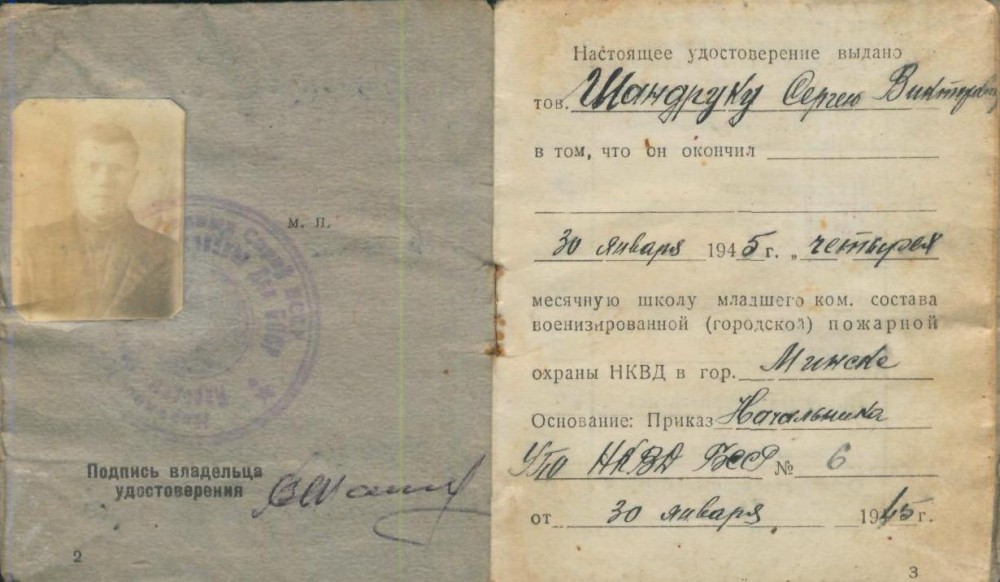 М. П.
Подпись владельца
удостоверения
2
Настоящее удостоверение выдано
тов. Шандруку Сергею Викторовичу
в том, что он окончил
30 января 1945 г. „ четырех
месячную школу младшего ком. состава
военизированной (городской) пожарной
охраны НКВД в гор. Минске
Основание: Приказ Начальника
УПО НКВД БССР № 6
от 30 января 1945 г.
3